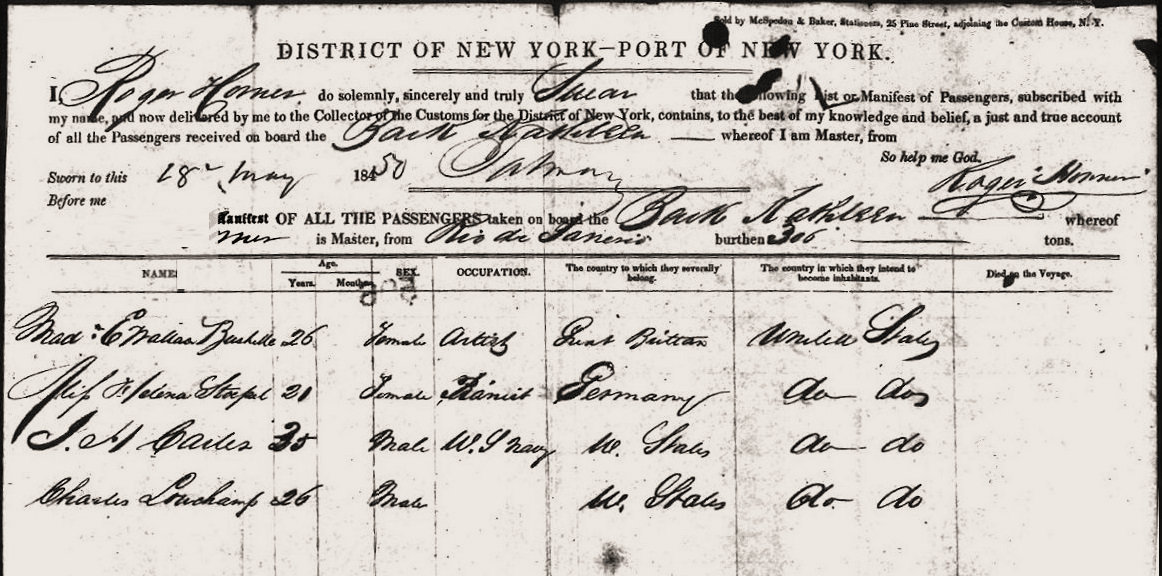 Sold by McSpedon & Baker, Stationers, 25 Pine Street, adjoining the Custom House, N. Y.
DISTRICT OF NEW YORK—PORT OF NEW YORK.
I, Roger Horner do solemnly, sincerely and truly Swear that the following List or Manifest of Passengers, subscribed with
my name, and now delivered by me to the Collector of the Customs for the District of New York, contains, to the best of my knowledge and belief, a just and true account
of all the Passengers received on board the Bark Kathleen whereof I am Master, from
So help me God.
Sworn to this 18 May 1850 Roger Horner
Before me
Manifest OF ALL THE PASSENGERS taken on board the Bark Kathleen whereof
is Master, from Rio de Janeiro burthen 306 tons.
NAME Age. Years. Months. SEX. OCCUPATION. The country to which they severally belong. The country in which they intend to become inhabitants. Died on the Voyage.
Mad: E Wallace 26 Female Artist Great Brittan United States
Miss Helena Stoepel 21 Female Pianist Germany do do
J. H Carter 35 Male U. S Navy U. States do do
Charles Louchamp 26 Male U. States do do